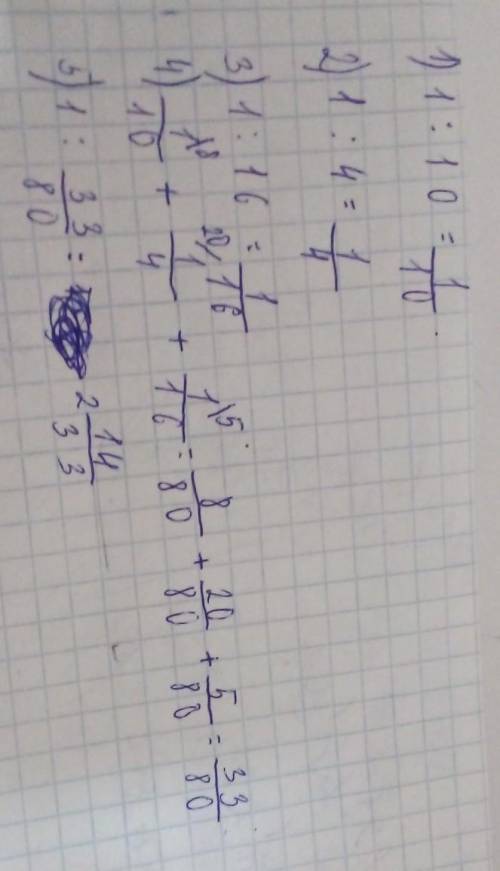 1) 1 : 10 = 1/10.
2) 1 : 4 = 1/4
3) 1 : 16 = 1/16
4) 1\8/10 + 20/1/4 + 1\5/16 = 8/80 + 20/80 + 5/80 = 33/80
5) 1 : 33/80 = 2 14/33